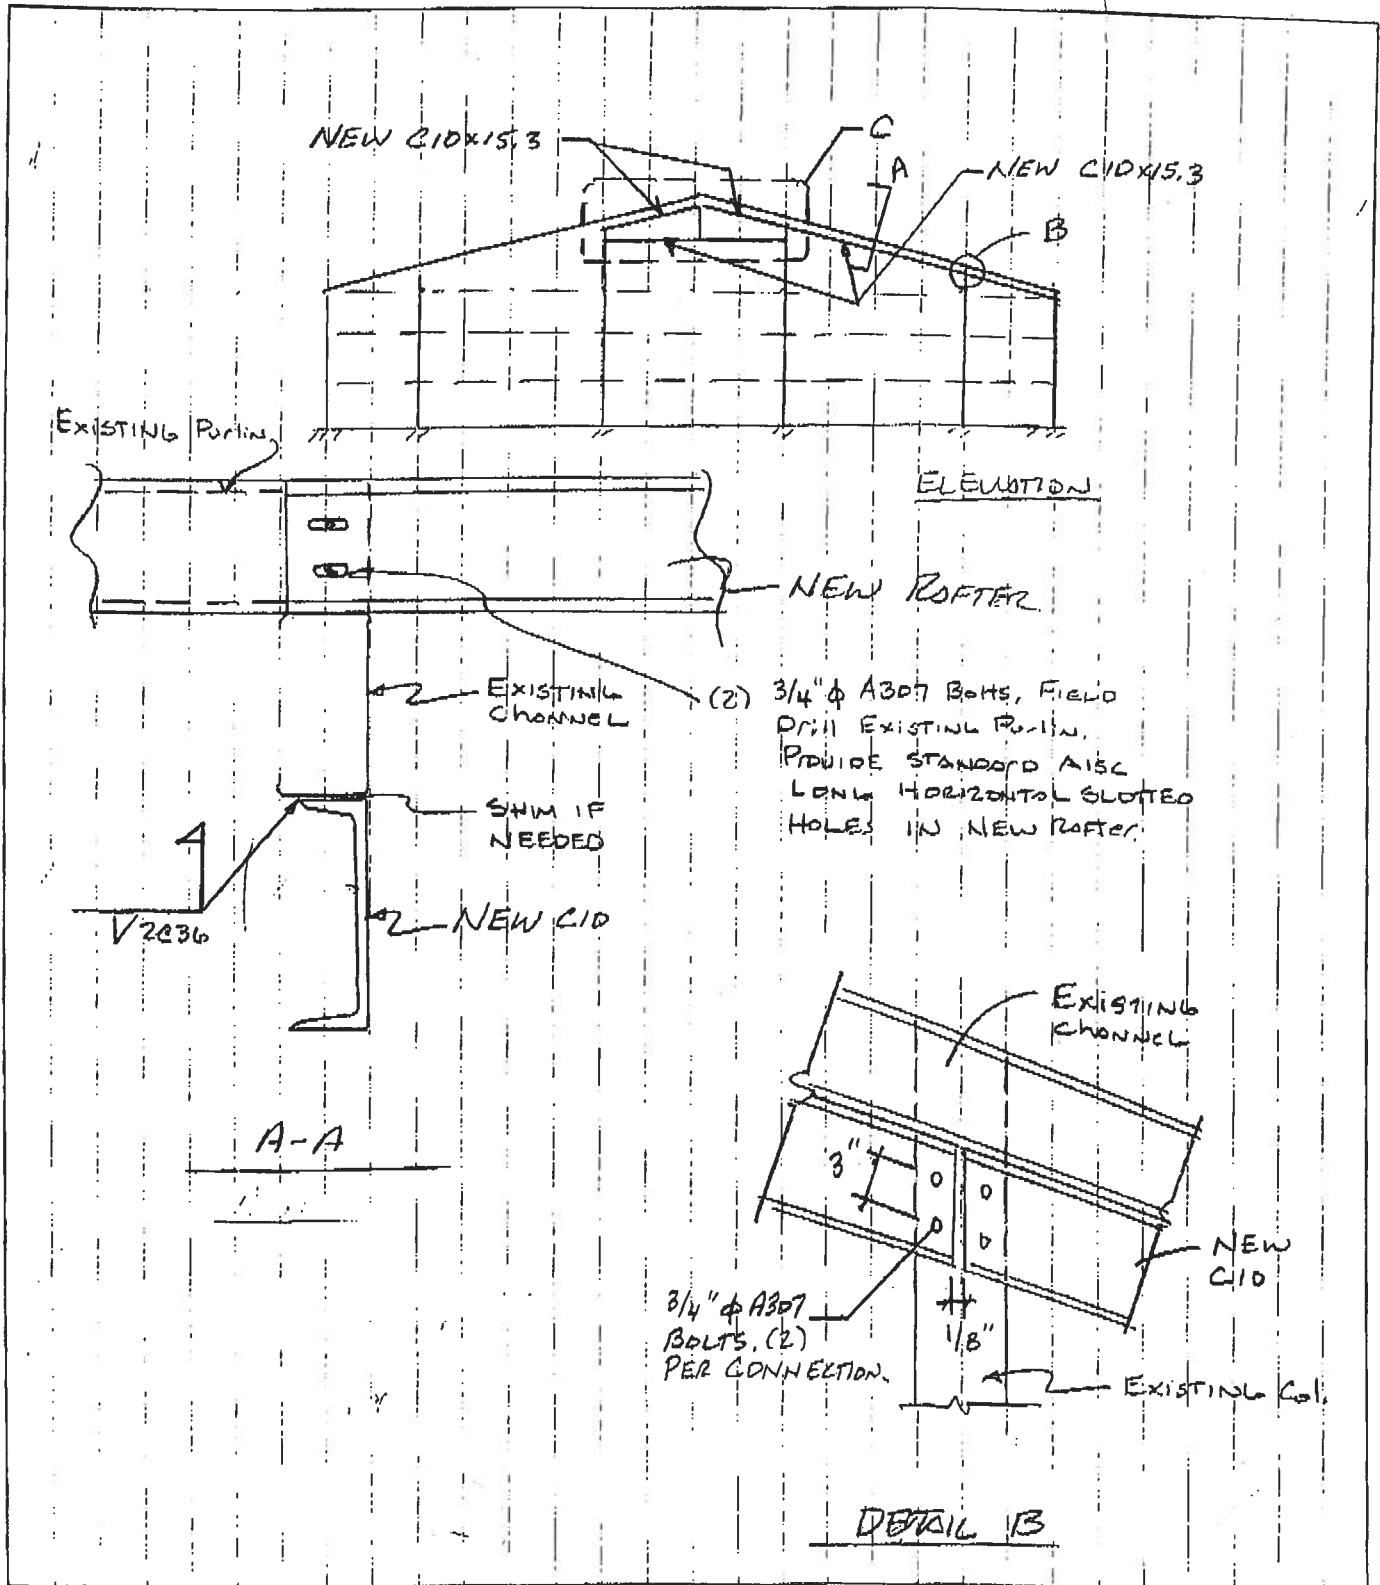 NEW C10x15.3
C
A
NEW C10x15.3
B
ELEVATION
EXISTING Purlin
NEW RAFTER
EXISTING
CHANNEL
(2) 3/4"ϕ A307 BOHS, FIELD
Drill EXISTING Purlin.
PROVIDE STANDARD AISC
LONG HORIZONTAL SLOTTED
HOLES IN NEW RAFTER.
SHIM IF
NEEDED
2@36
NEW C10
A-A
EXISTING
CHANNEL
3"
NEW
C10
3/4"ϕ A307
BOLTS, (2)
PER CONNECTION.
1/8"
EXISTING Col.
DETAIL B